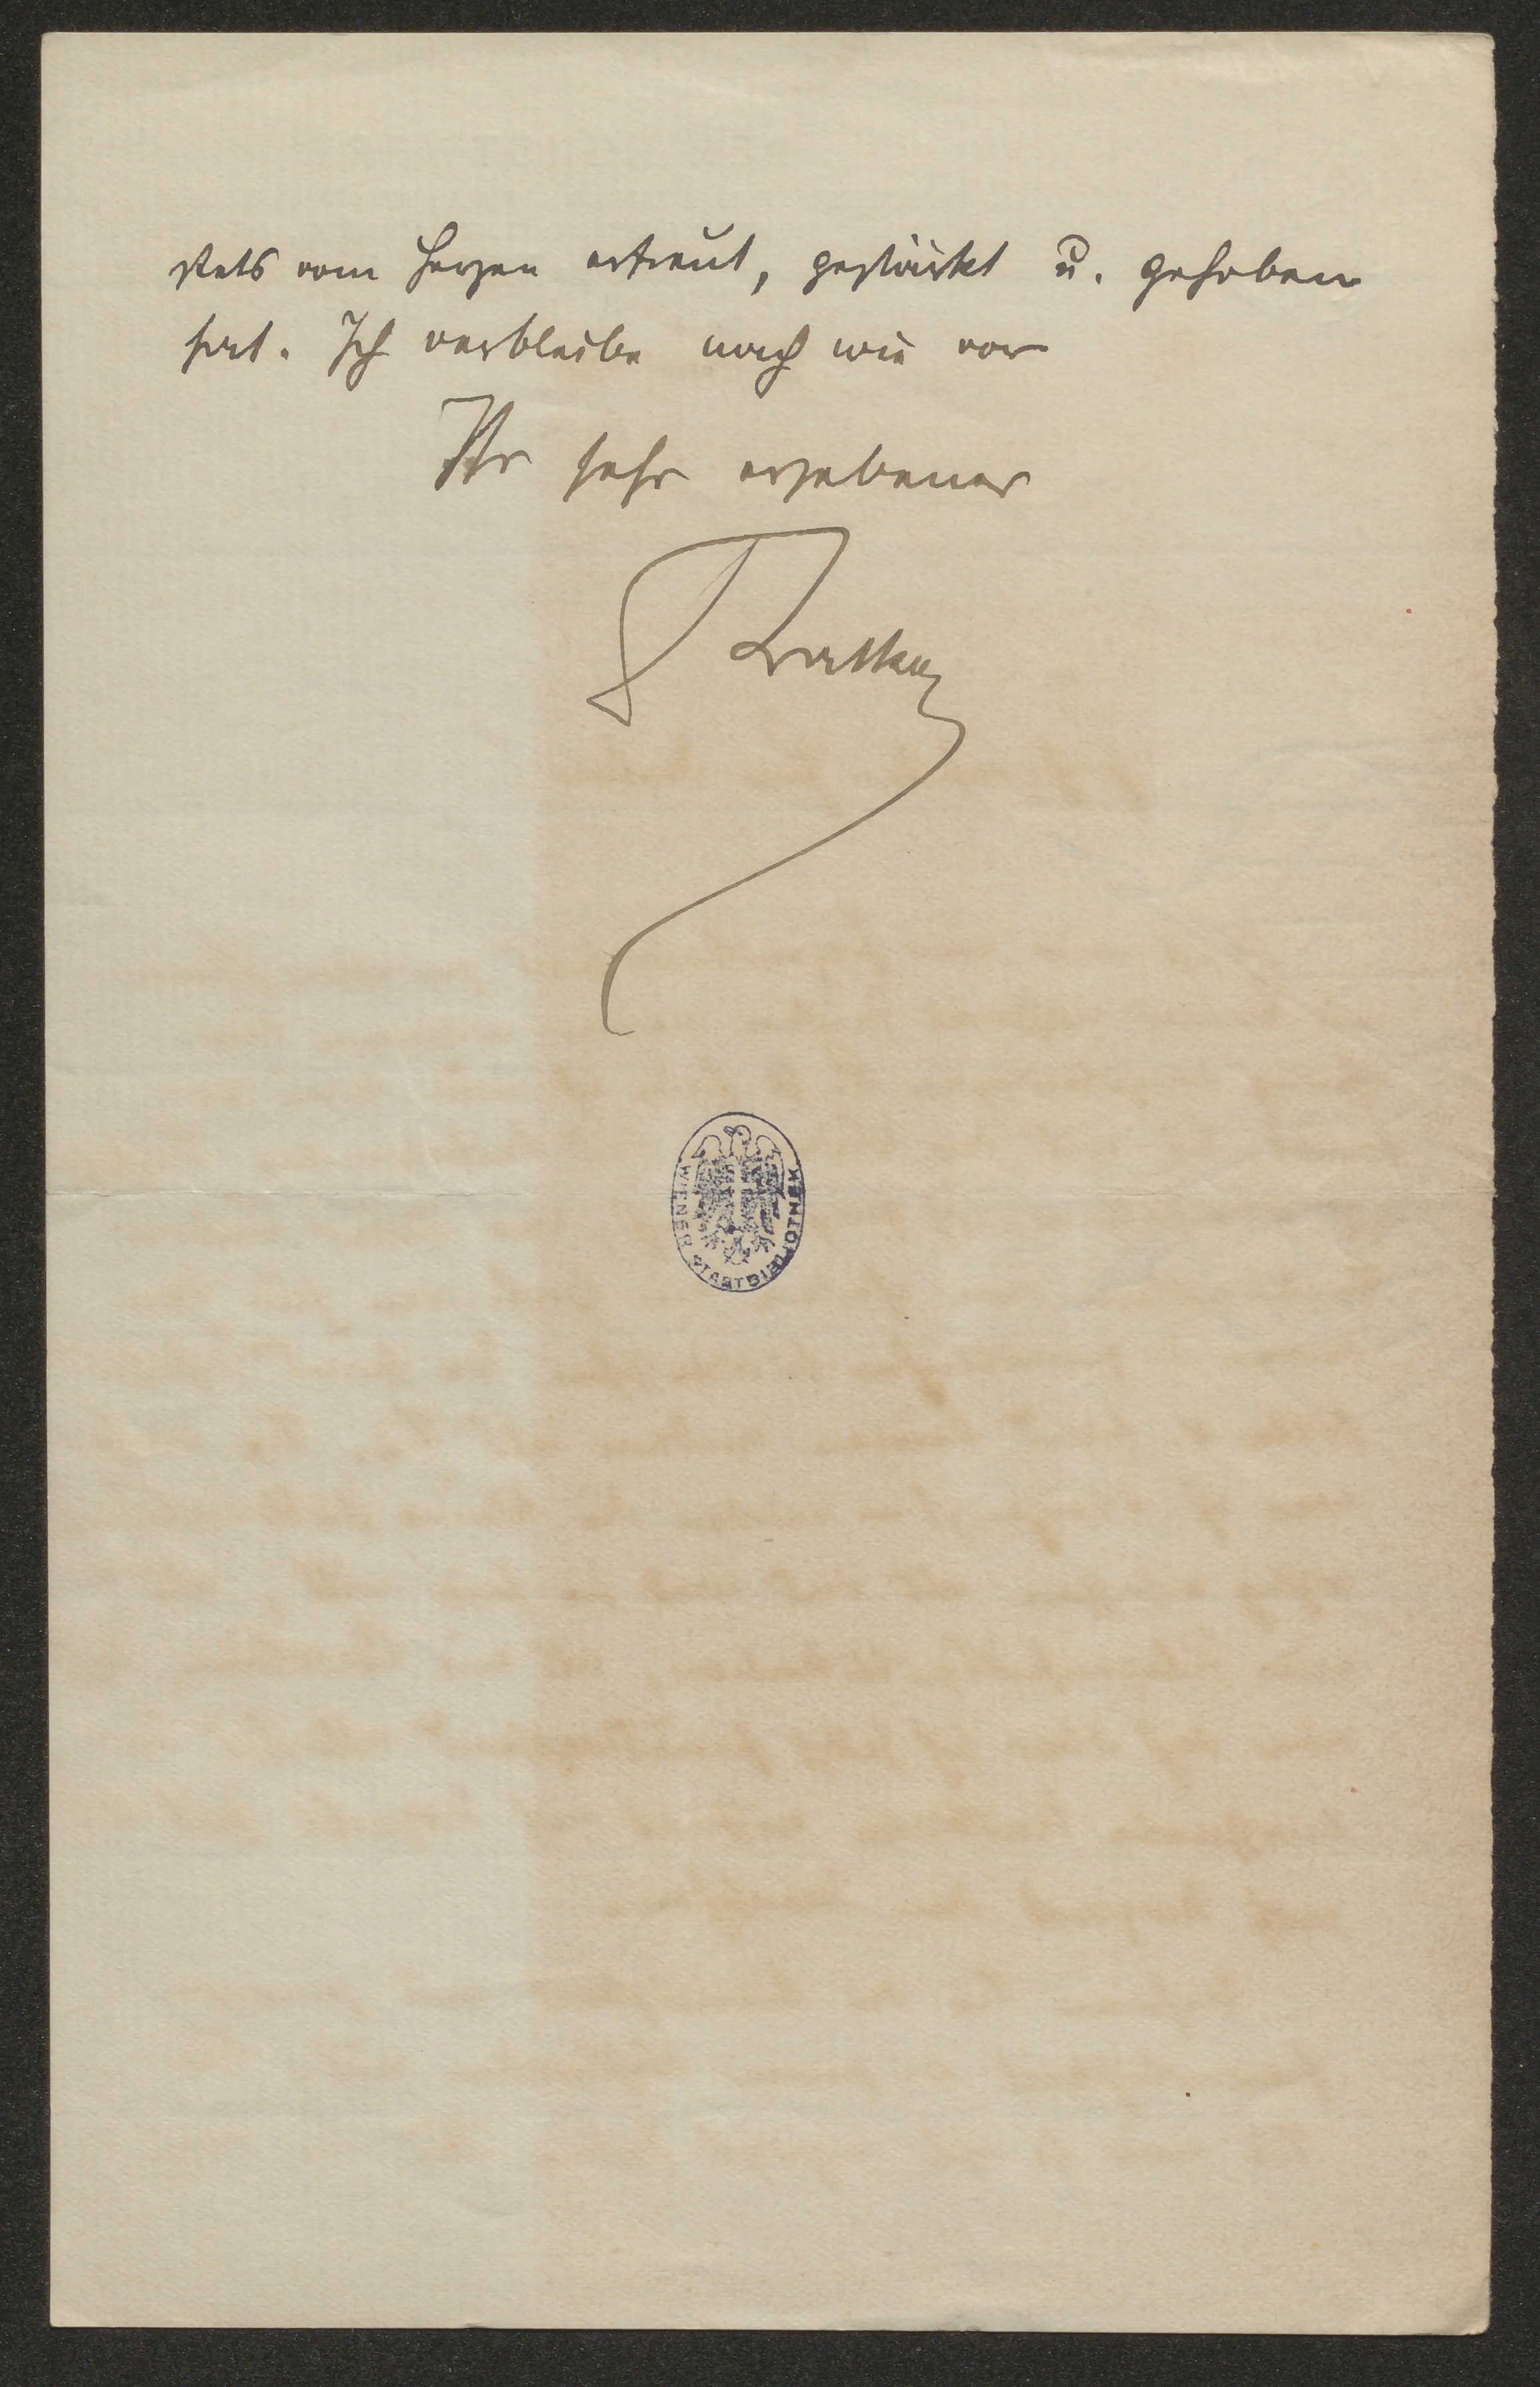 stets vom Herzen erfreut, gestärkt u. gehoben
hat. Ich verbleibe nach wie vor
Ihr sehr ergebener
WIENER STADTBIBLIOTHEK